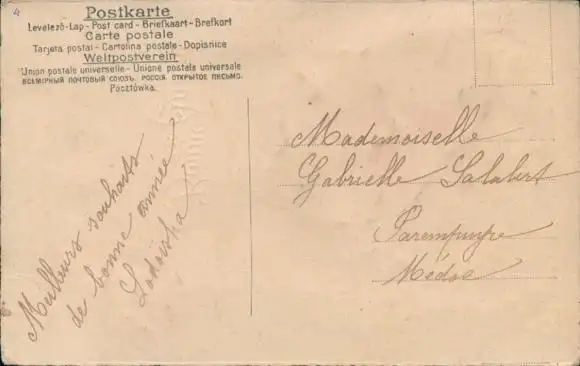 4
Postkarte
Levelező-Lap - Post card - Briefkaart - Brefkort
Carte postale
Tarjeta postal - Cartolina postale - Dopisnice
Weltpostverein
Union postale universelle - Unione postale universale
ВСЕМІРНЫЙ ПОЧТОВЫЙ СОЮЗЪ. РОССІЯ ОТКРЫТОЕ ПИСЬМО.
Pocztówka.
Meilleurs souhaits
de bonne année
Lodoïska
Mademoiselle
Gabrielle Salabert
Parempuyre
Médoc